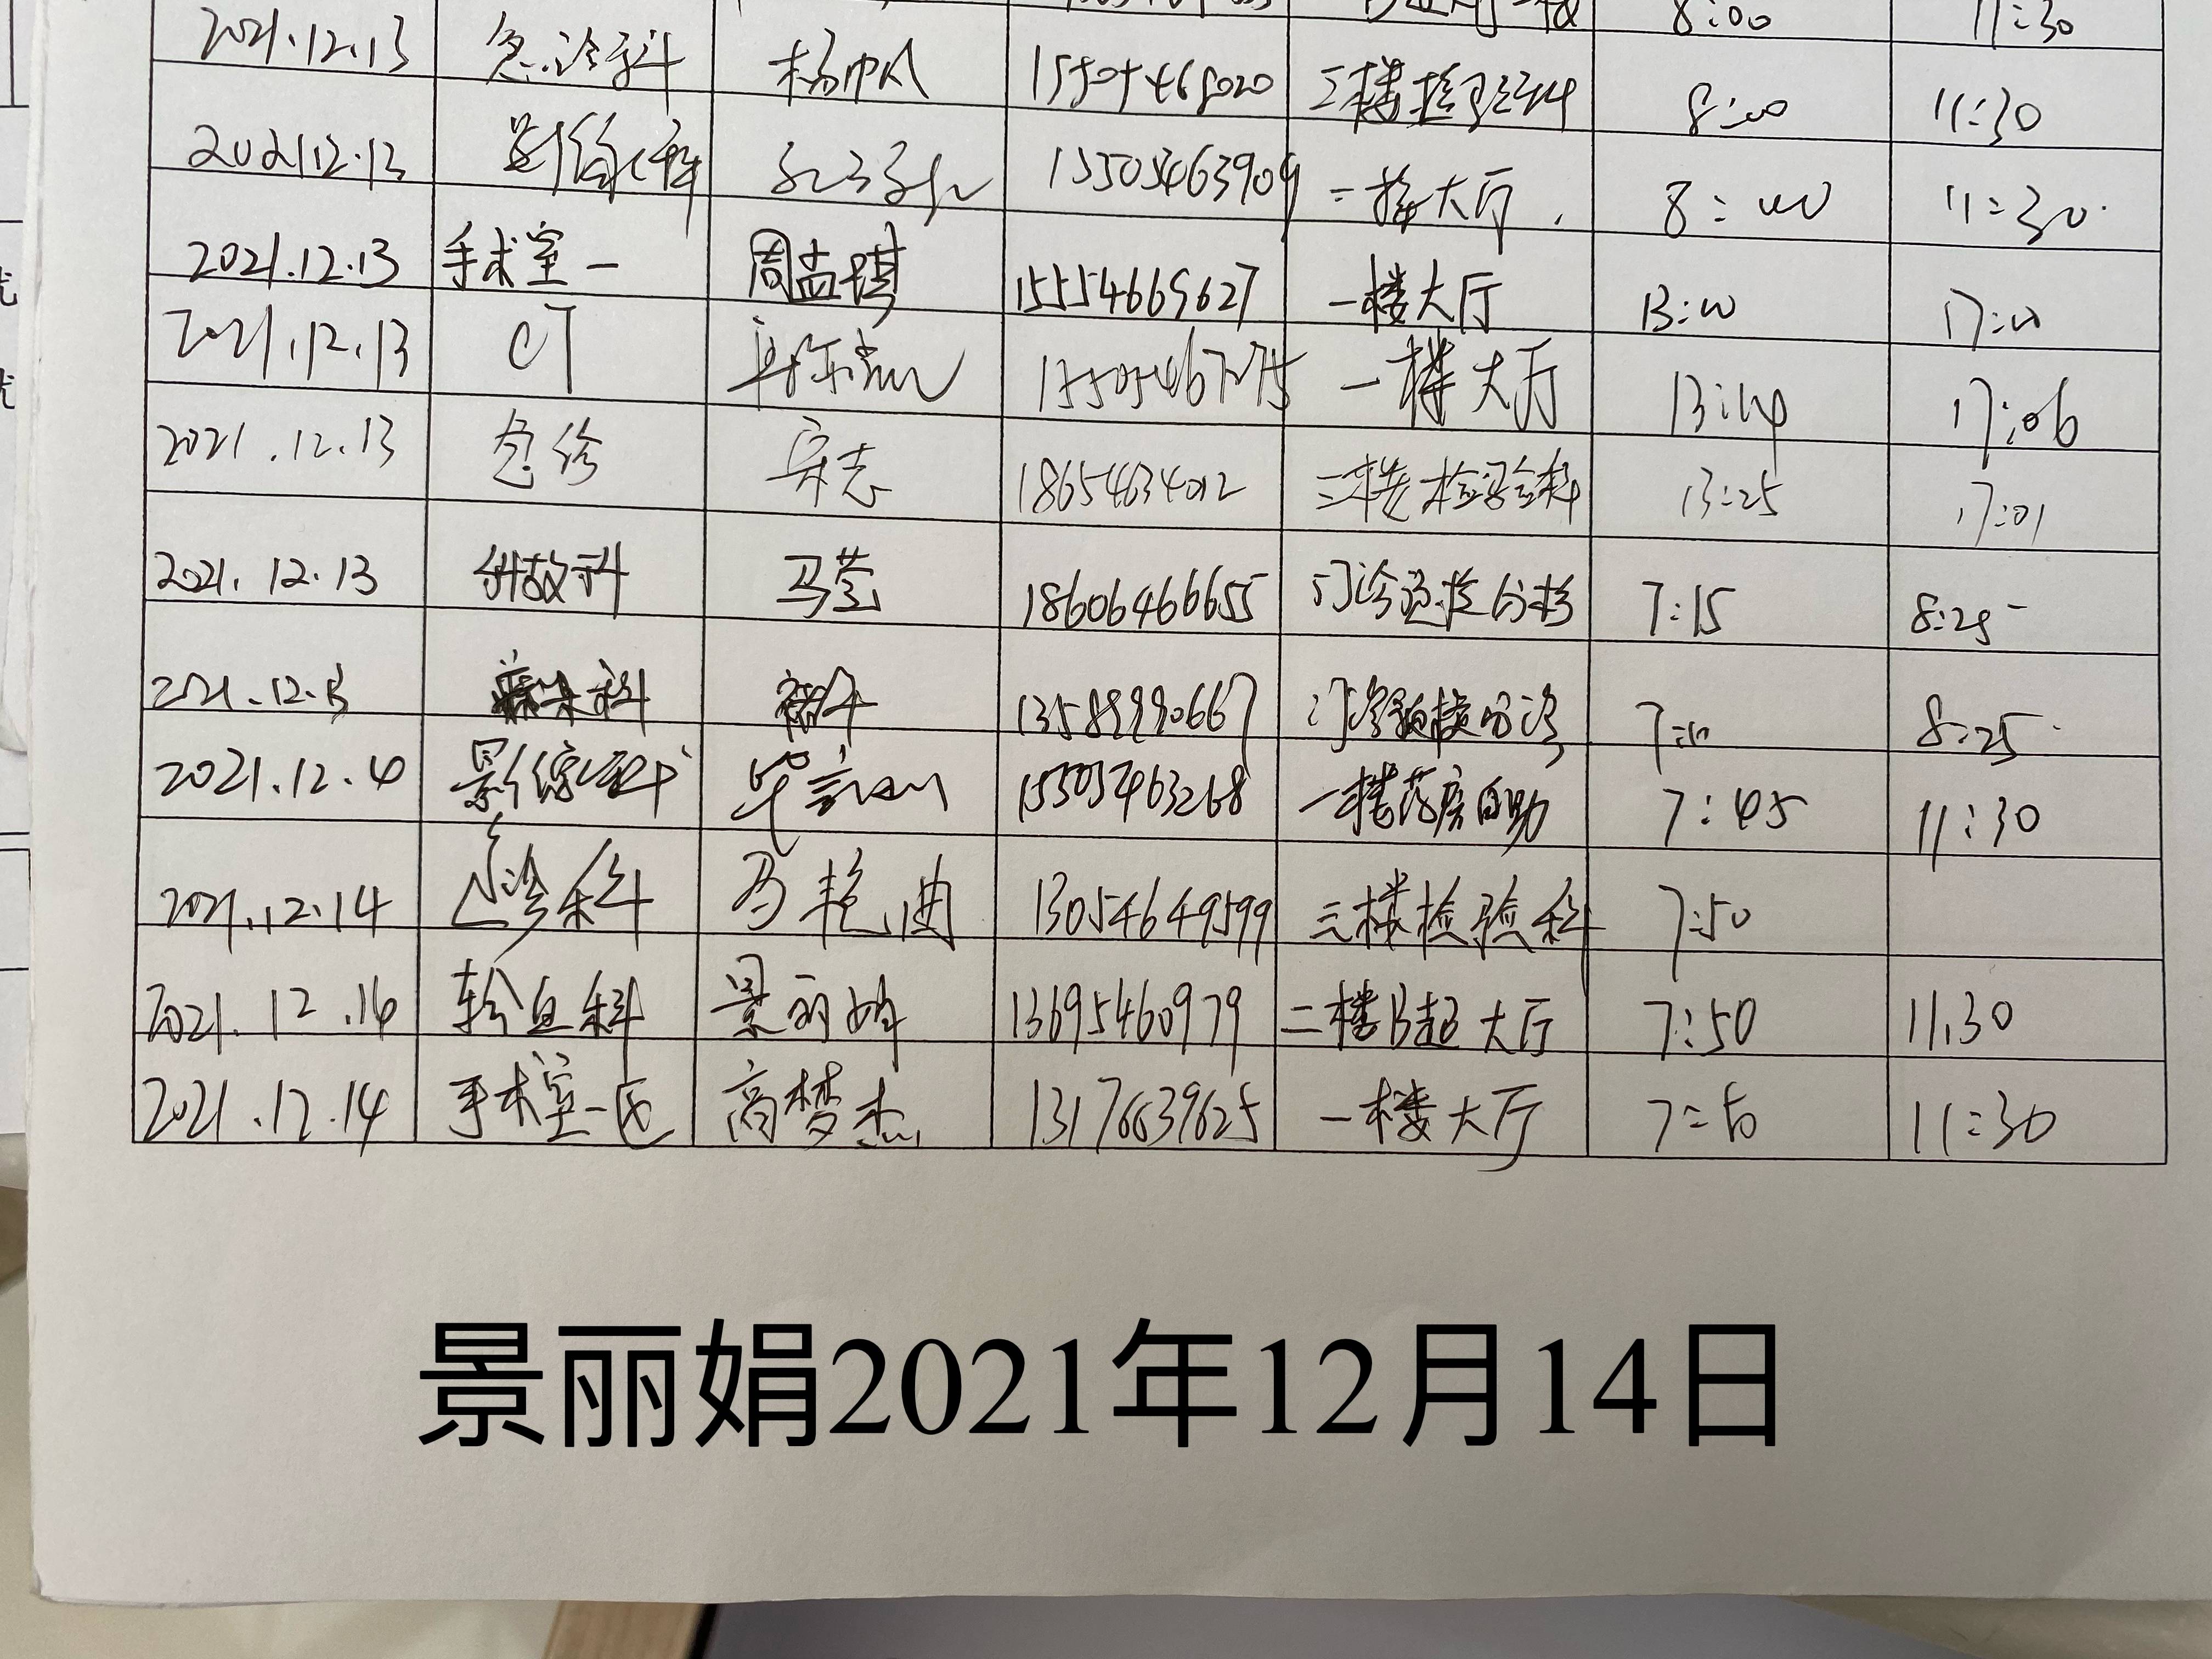 8:00 11:30
2021.12.13 急诊科 杨帅 三楼检验科 8:00 11:30
2021 12.13 影像科 15505463909 一楼大厅 8:00 11:30
2021.12.13 手术室一 周孟琪 15554669627 一楼大厅 13:00 17:00
2021.12.13 CT 一楼大厅 17:06
2021.12.13 急诊 宋志 18654634012 三楼检验科 13:25 17:01
2021.12.13 马莹 18606466655 门诊预检分诊 7:15 8:25
2021.12.13 麻醉科 13589990667 门诊预检分诊 8:25
2021.12.14 影像科 15505463268 一楼药房自助 7:45 11:30
2021.12.14 急诊科 13054649599 三楼检验科 7:50
2021.12.14 输血科 景丽娟 13695460979 二楼B超大厅 7:50 11:30
2021.12.14 手术室一区 高梦杰 13176639625 一楼大厅 7:50 11:30
景丽娟2021年12月14日